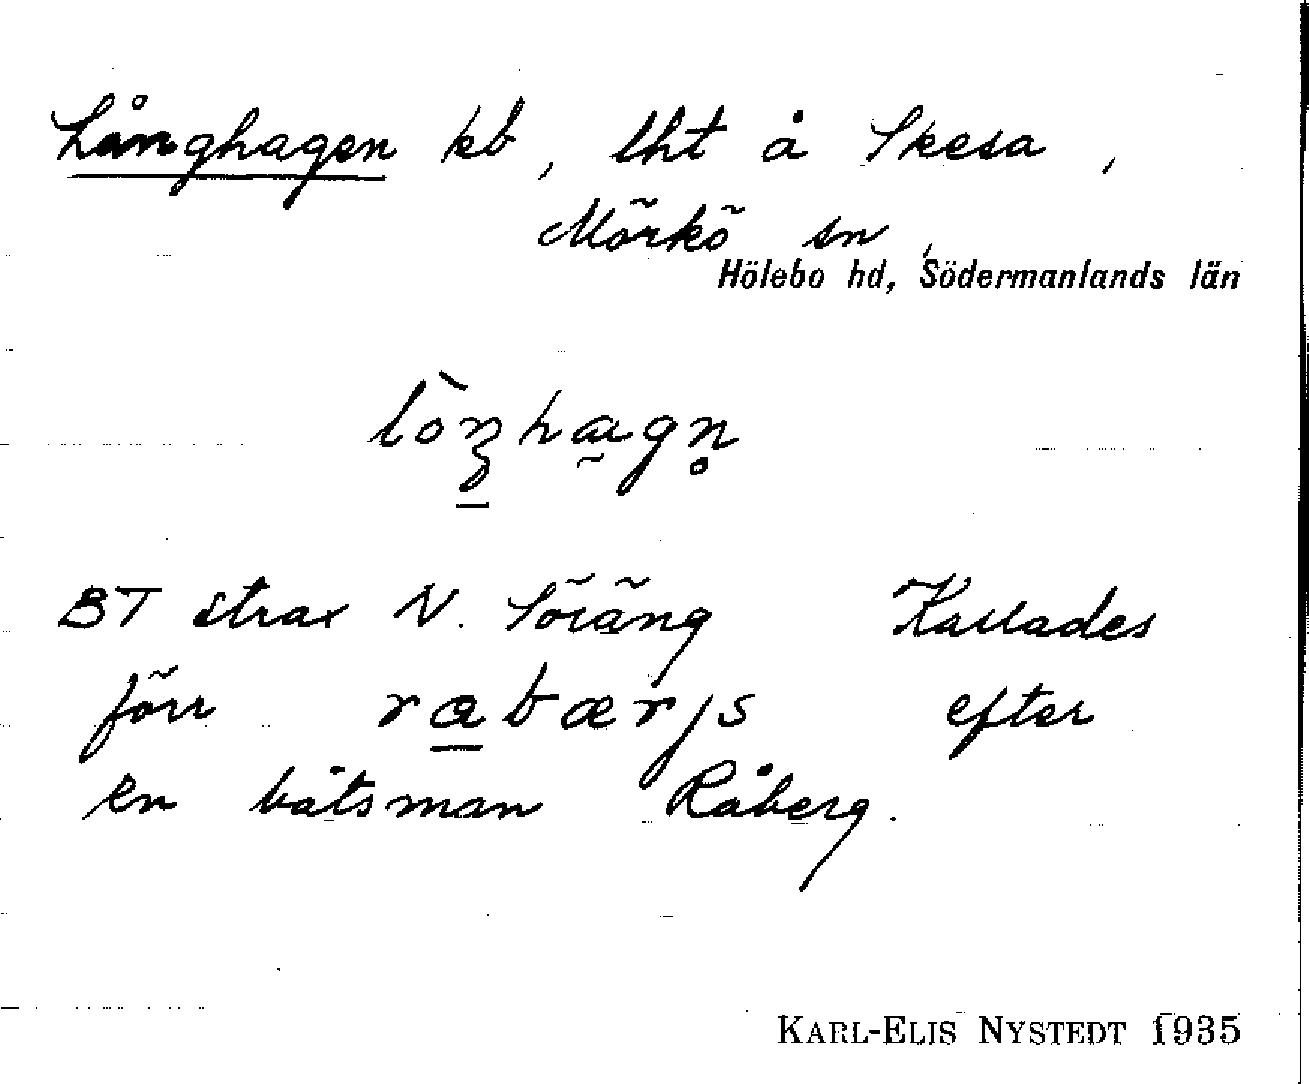 Långhagen kb, lht å Skesa,
Mörkö sn,
Hölebo hd, Södermanlands län
lòŋhagn̥
BT strax N. Söräng Kallades
förr rabærjs efter
en båtsman Råberg.
KARL-ELIS NYSTEDT 1935